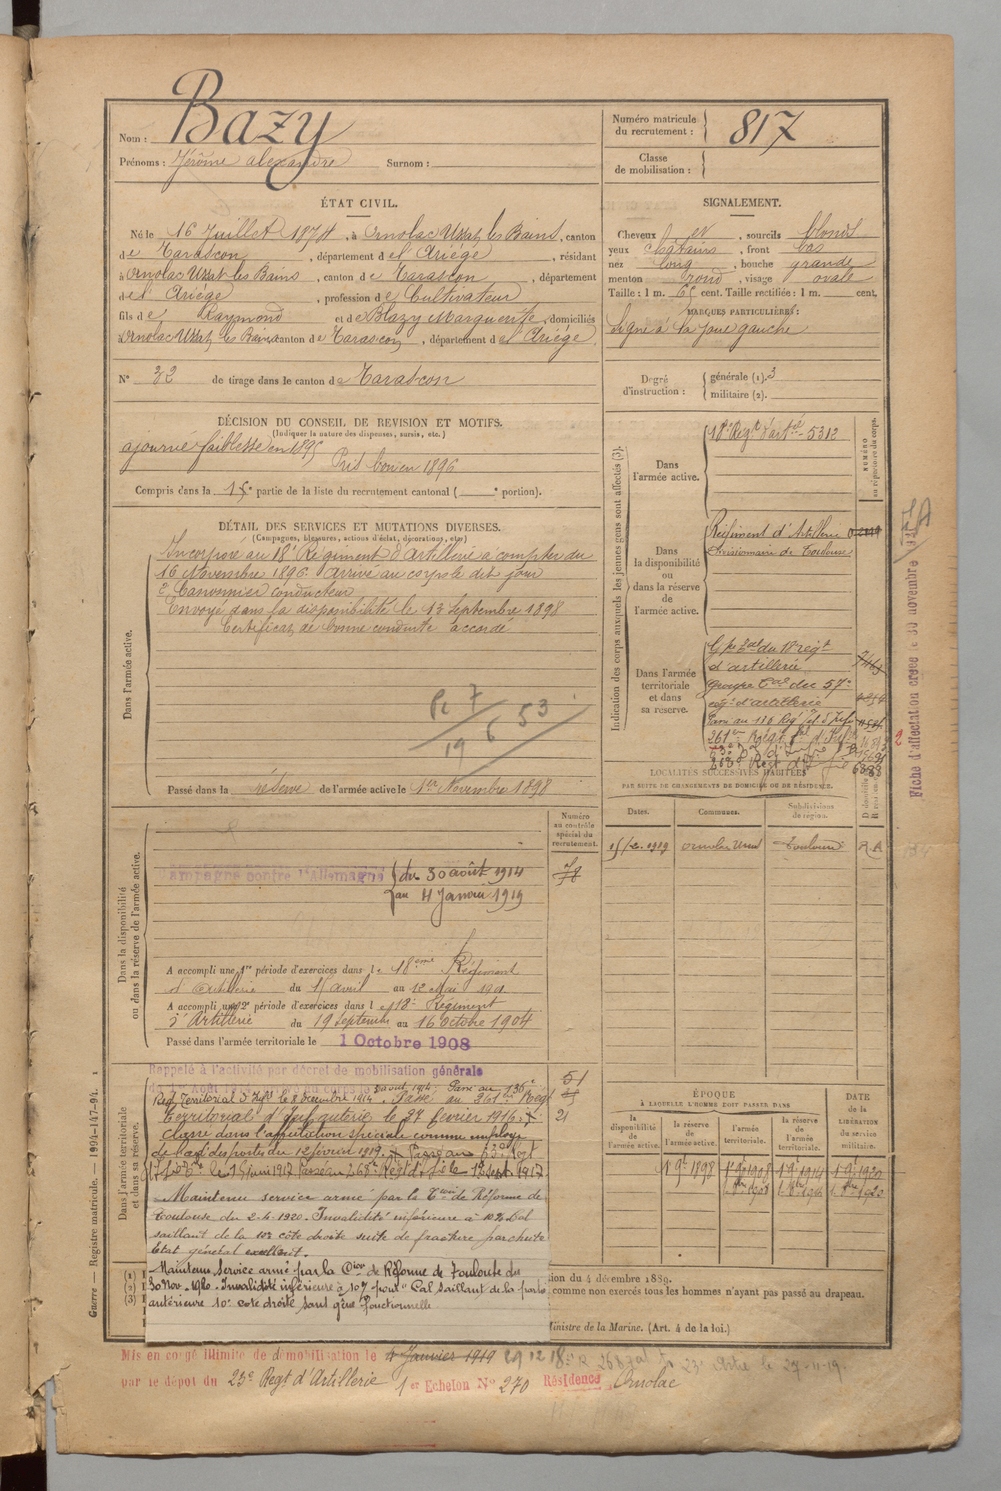 Nom : Bazy
Prénoms : Jérôme Alexandre Surnom :
Numéro matricule du recrutement : 817
Classe de mobilisation :
ÉTAT CIVIL.
Né le 16 Juillet 1874, à Ornolac Ussat les Bains, canton
de Tarascon, département de l'Ariège, résidant
à Ornolac Ussat les Bains, canton de Tarascon, département
de l'Ariège, profession de Cultivateur
fils de Raymond et de Blazy Marguerite, domiciliés
Ornolac Ussat les Bains canton de Tarascon, département de l'Ariège.
N° 32 de tirage dans le canton de Tarascon
SIGNALEMENT.
Cheveux et, sourcils blonds
yeux chatains, front bas
nez long, bouche grande
menton rond, visage ovale
Taille : 1 m. 65 cent. Taille rectifiée : 1 m. cent.
MARQUES PARTICULIÈRES :
Signe à la joue gauche
Degré d'instruction : générale (1). 3
militaire (2).
DÉCISION DU CONSEIL DE REVISION ET MOTIFS.
(Indiquer la nature des dispenses, sursis, etc.)
ajourné faiblesse en 1895
Pris bon en 1896
Compris dans la 1re partie de la liste du recrutement cantonal ( e portion).
DÉTAIL DES SERVICES ET MUTATIONS DIVERSES.
(Campagnes, blessures, actions d'éclat, décorations, etc.)
Dans l'armée active.
Incorporé au 18e Régiment d'artillerie a compter du
16 Novembre 1896. Arrivé au corps le dit jour
2e Canonnier conducteur
Envoyé dans la disponibilité le 13 Septembre 1898
Certificat de bonne conduite accordé
7 6 53
19
Passé dans la réserve de l'armée active le 1er Novembre 1898
Indication des corps auxquels les jeunes gens sont affectés (3).
NUMÉRO au répertoire du corps.
Dans l'armée active.
18e Régt d'artie - 5312
Dans la disponibilité ou dans la réserve de l'armée active.
Régiment d'Artillerie
divisionnaire de Toulouse
Dans l'armée territoriale et dans sa réserve.
Gpe Tal du 18e régt
d'artillerie
Groupe Tal du 57e
régt d'artillerie
268e Régt
Fiche d'affectation créée le 30 novembre
LOCALITÉS SUCCESSIVES HABITÉES
PAR SUITE DE CHANGEMENTS DE DOMICILE OU DE RÉSIDENCE.
Dates. Communes. Subdivisions de région.
15/2.1919 Ornolac Ussat Toulouse R A
Dans la disponibilité ou dans la réserve de l'armée active.
Numéro au contrôle spécial du recrutement.
Campagne contre l'Allemagne du 30 août 1914
au 4 Janvier 1919
A accompli une 1re période d'exercices dans le 18ème Régiment
d'Artillerie du 15 avril au 12 Mai 190
A accompli une 2e période d'exercices dans le 18e Régiment
d'Artillerie du 19 Septembre au 16 Octobre 1904
Passé dans l'armée territoriale le 1 Octobre 1908
Dans l'armée territoriale et dans sa réserve.
Rappelé à l'activité par décret de mobilisation générale
du 1er Août 1914. 30 août 1914. Passé au 136e
Régt Territorial d'Infie le 8 décembre 1914. Passé au 261e Régt
Territorial d'Infanterie le 27 février 1916.
Classé dans l'affectation spéciale comme employé
des postes du 12 février 1919.
Passé au 268e Régt 1er Sept 1917
Maintenu service armé par la Cion de Réforme de
Toulouse du 2-4-1920. Invalidité inférieure à 10% Cal
saillant de la 10e côte droite suite de fracture par chute
État général excellent.
Maintenu Service armé par la Cion de Réforme de Toulouse du
30 Nov. 1920. Invalidité inférieure à 10% pour "Cal saillant de la partie
antérieure 10e côte droite sans gêne fonctionnelle
ÉPOQUE
À LAQUELLE L'HOMME DOIT PASSER DANS
la disponibilité de l'armée active. la réserve de l'armée active. l'armée territoriale. la réserve de l'armée territoriale.
DATE de la LIBÉRATION du service militaire.
1 9bre 1898 1 9bre 1908 1 9bre 1914 1 9bre 1920
(1)
(2)
(3)
ion du 4 décembre 1889.
comme non exercés tous les hommes n'ayant pas passé au drapeau.
Ministre de la Marine. (Art. 4 de la loi.)
Guerre — Registre matricule. — 1994-147-94. 1
Mis en congé illimité de démobilisation le 4 Janvier 1919 29 12 18
par le dépôt du 23e Régt d'Artillerie 1er Echelon N° 270 Résidence Ornolac
23e Artie le 27-11-19.